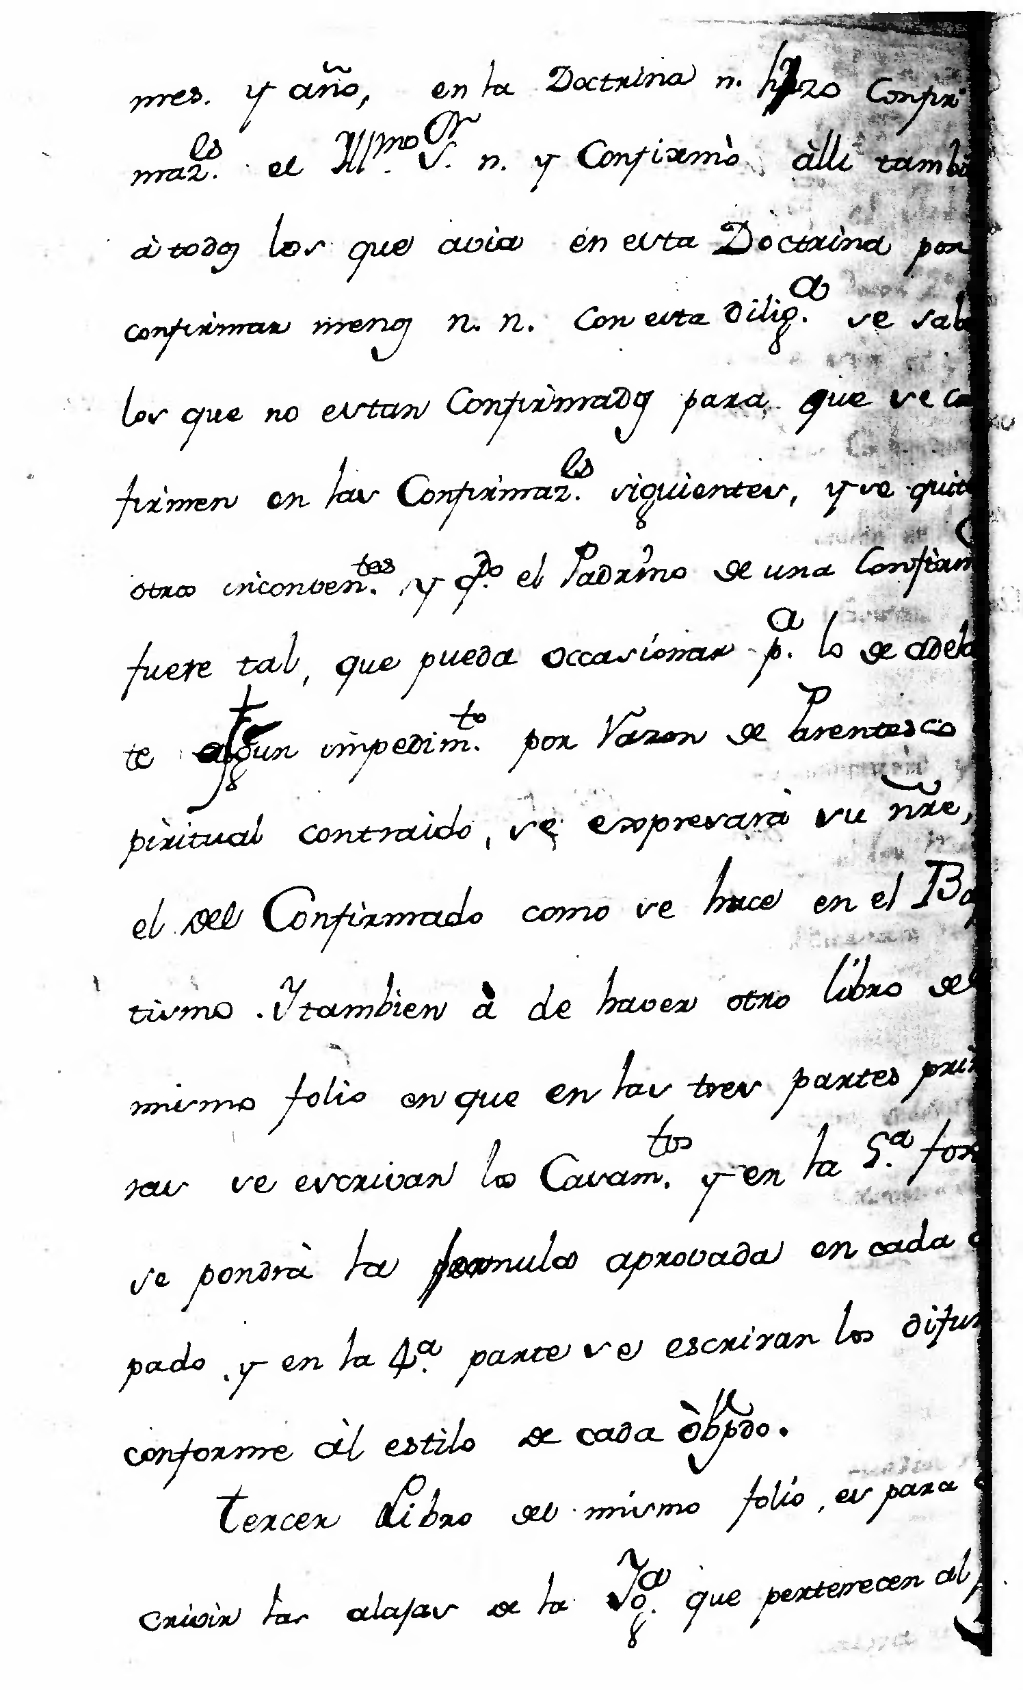 mes. y año, en la Doctrina n. hizo Confir
maz.es el Ill.mo S.or n. y Confirmò àlli tambi
à todos los que avia en esta Doctrina por
confirmar menos n. n. Con esta Dilig.a se sab
los que no estan Confirmados para que se co
firmen en las Confirmaz.es siguientes, y se quit
otros inconven.tes, y q.do el Padrino de una Confirm
fuere tal, que pueda occasionar p.a lo de adela
te algun impedim.to por Razon de Parentesco
piritual contraido, se expresarà su nr̃e,
el del Confirmado como se hace en el Ba
tismo. Y tambien à de haver otro libro de
mismo folio en que en las tres partes prim
ras se escrivan los Casam.tos y en la 5.a fox
se pondrà la formula aprovada en cada o
pado, y en la 4.a parte se escriran los difun
conforme àl estilo de cada òb̃pdo.
Tercer Libro del mismo folio, es para e
crivir las alajas de la Yg.a que pertenecen al